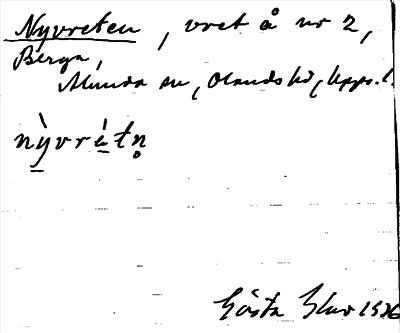 Nyvreten, vret å nr 2,
Berga,
Almunda sn, Olands hd, Upps. l.
nỳvrétn̥
Gösta 1926